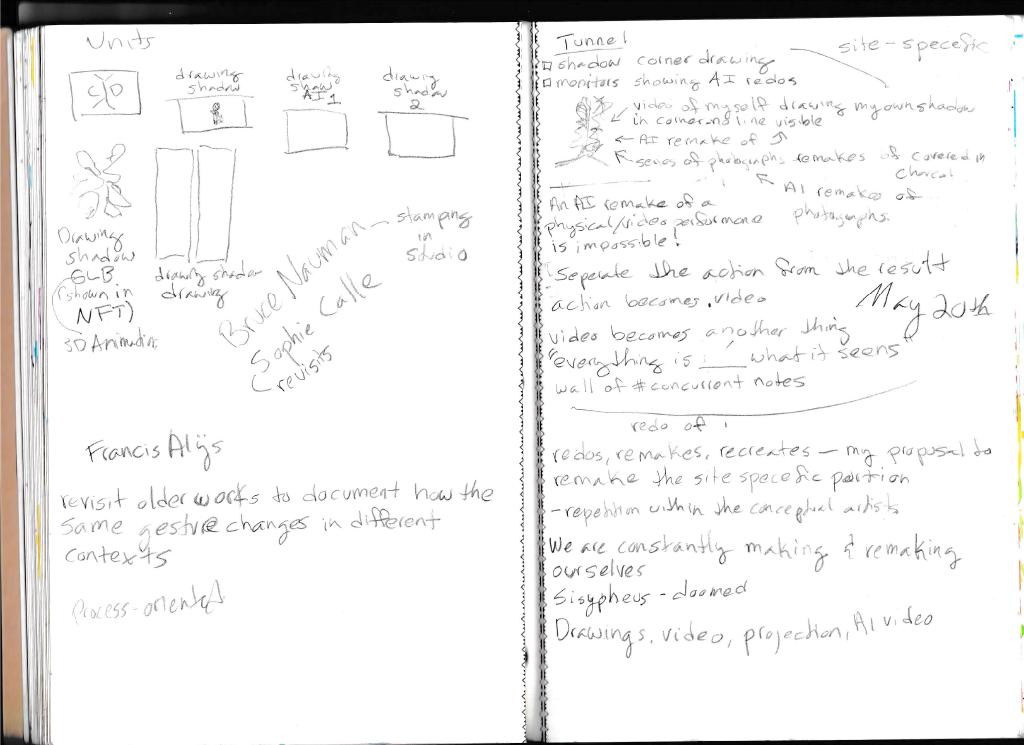 Units
drawing
shadow
drawing
shadow
AI 1
drawing
shadow
2
Drawing
shadow
GLB
(shown in
NFT)
3D Animation
drawing shadow
drawing
Bruce Nauman — stamping
in
studio
Sophie Calle
revisits
Francis Alÿs
revisit older works to document how the
same gesture changes in different
contexts
Process-oriented
Tunnel
site-specefic
shadow corner drawing
monitors showing AI redos
video of myself drawing my own shadow
in corner, no line visible
← AI remake of
series of photographs remakes of covered in
charcoal
AI remakes of
photographs.
An AI remake of a
physical/video performance
is impossible!
Seperate the action from the result
action becomes video
May 20th
video becomes another thing
"everything is ___ what it seems"
wall of #concurrent notes
redo of
redos, remakes, recreates — my proposal to
remake the site specefic portion
- repetition within the conceptual artists
We are constantly making & remaking
ourselves
Sisypheus - doomed
Drawings, video, projection, AI video